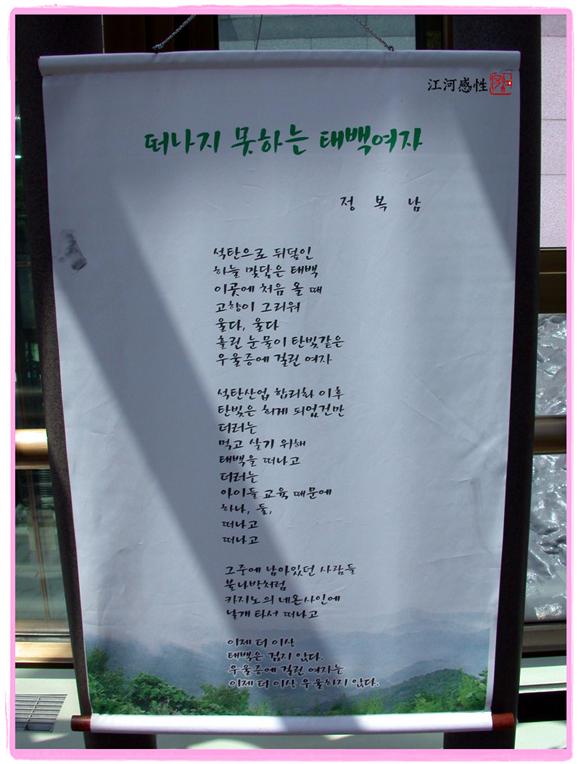 江河感性
떠나지 못하는 태백여자
정 복 남
석탄으로 뒤덮인
하늘 맞닿은 태백
이곳에 처음 올 때
고향이 그리워
울다, 울다
흘린 눈물이 탄빛같은
우울증에 걸린 여자
석탄산업 합리화 이후
탄빛은 희게 되었건만
더러는
먹고 살기 위해
태백을 떠나고
더러는
아이들 교육 때문에
하나, 둘,
떠나고
떠나고
그중에 남아있던 사람들
불나방처럼
카지노의 네온사인에
날개 타서 떠나고
이제 더 이상
태백은 검지 않다.
우울증에 걸린 여자는
이제 더 이상 우울하지 않다.